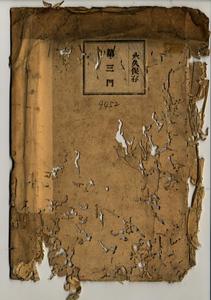 永久保存
第三門
9452